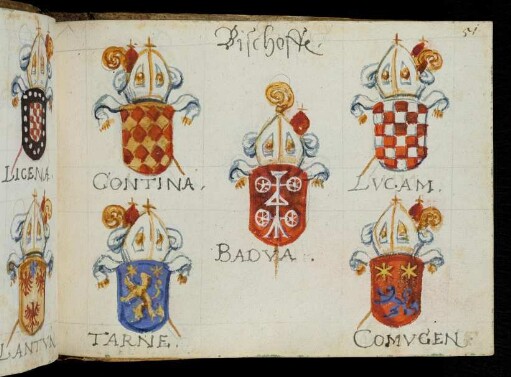 Bischoffe.
51
LICENA.
CONTINA.
LVCAM.
BADVA.
LANTVN
TARNE.
COMVGEN